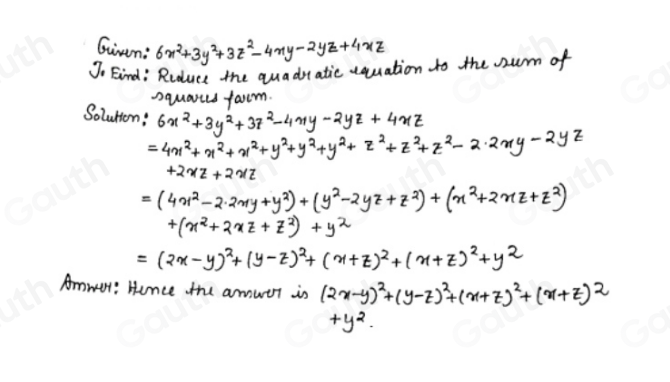 Given: 6x²+3y²+3z²-4xy-2yz+4xz
To Find: Reduce the quadratic equation to the sum of
squares form.
Solution: 6x²+3y²+3z²-4xy-2yz+4xz
=4x²+x²+x²+y²+y²+y²+z²+z²+z²-2·2xy-2yz
+2xz+2xz
=(4x²-2·2xy+y²)+(y²-2yz+z²)+(x²+2xz+z²)
+(x²+2xz+z²)+y²
=(2x-y)²+(y-z)²+(x+z)²+(x+z)²+y²
Answer: Hence the answer is (2x-y)²+(y-z)²+(x+z)²+(x+z)2
+y².
Gauth